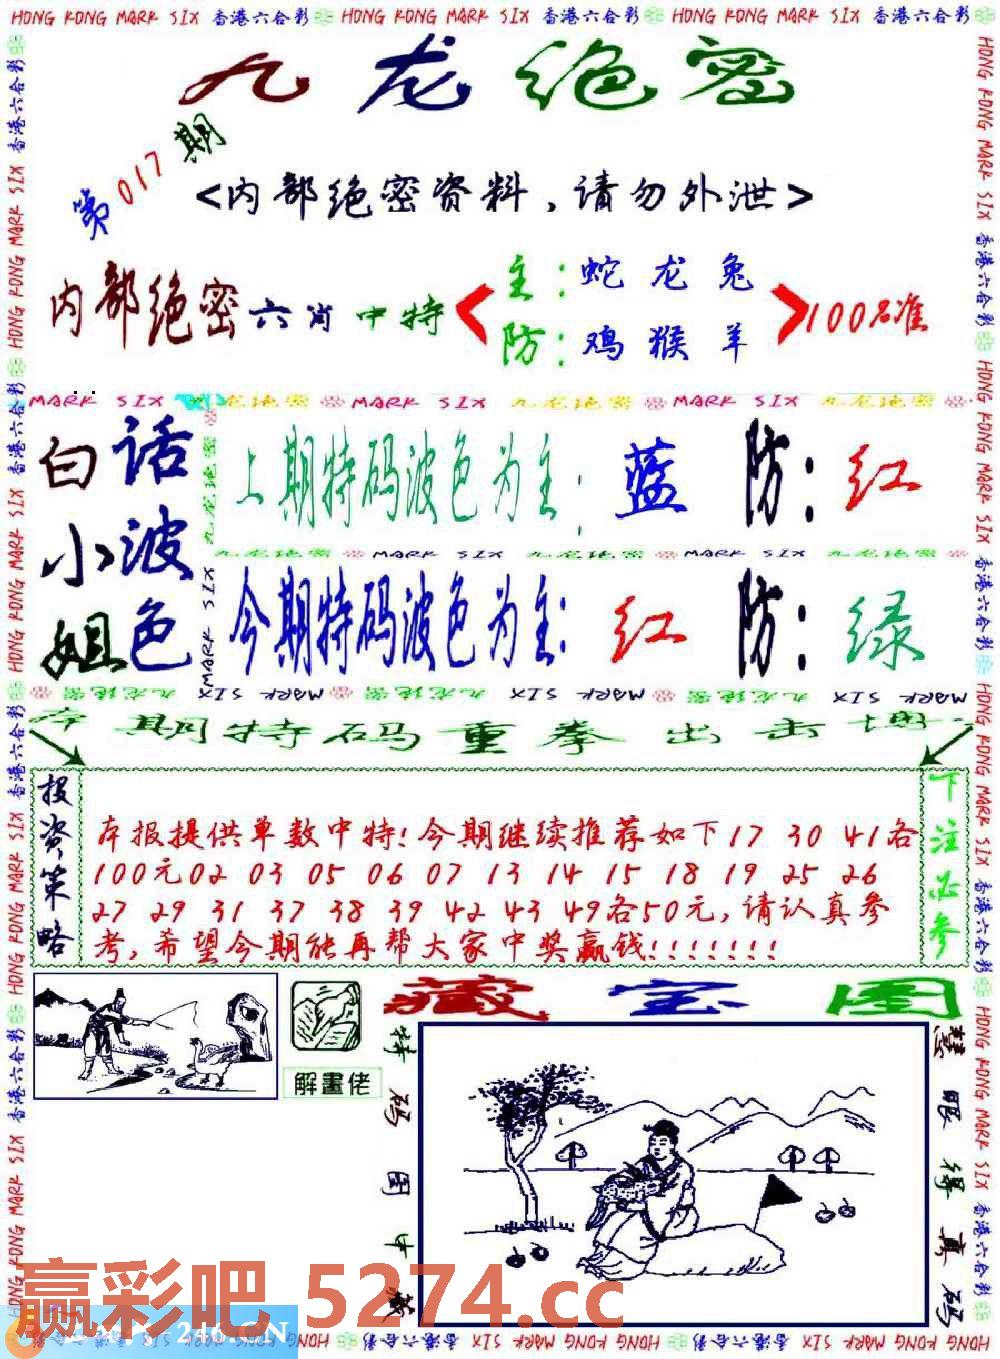 HONG KONG MARK SIX 香港六合彩 HONG KONG MARK SIX 香港六合彩 HONG KONG MARK SIX 香港六合彩
九龙绝密
第017期
<内部绝密资料,请勿外泄>
内部绝密六肖中特
主:蛇龙兔
防:鸡猴羊
100%准
MARK SIX 九龙绝密 MARK SIX 九龙绝密 MARK SIX 九龙绝密
白小姐
话波色
上期特码波色为主:蓝 防:红
九龙绝密 MARK SIX 九龙绝密 MARK SIX 九龙绝密
今期特码波色为主:红 防:绿
本期特码重拳出击
投资策略
本报提供单数中特!今期继续推荐如下17 30 41各
100元02 03 05 06 07 13 14 15 18 19 25 26
27 29 31 37 38 39 42 43 49各50元,请认真参
考,希望今期能再帮大家中奖赢钱!!!!!!!
下注必参
解畫佬
藏宝图
特码图中藏
慧眼得真码
赢彩吧 5274.cc
246.CN